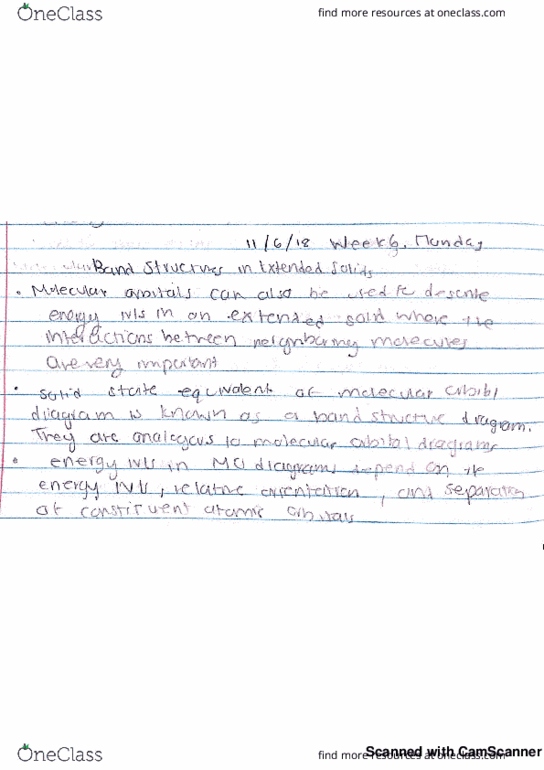 OneClass
find more resources at oneclass.com
11/6/18 Week 6, Monday
Band Structures in Extended Solids
• Molecular orbitals can also be used to describe
energy lvls in an extended solid where the
interactions between neighboring molecules
are very important
• solid state equivalent of molecular orbital
diagram is known as a band structure diagram.
They are analogous to molecular orbital diagrams
• energy lvls in MO diagrams depend on the
energy lvls, relative orientation, and separation
of constituent atomic orbitals
OneClass
find more resources at oneclass.com
Scanned with CamScanner